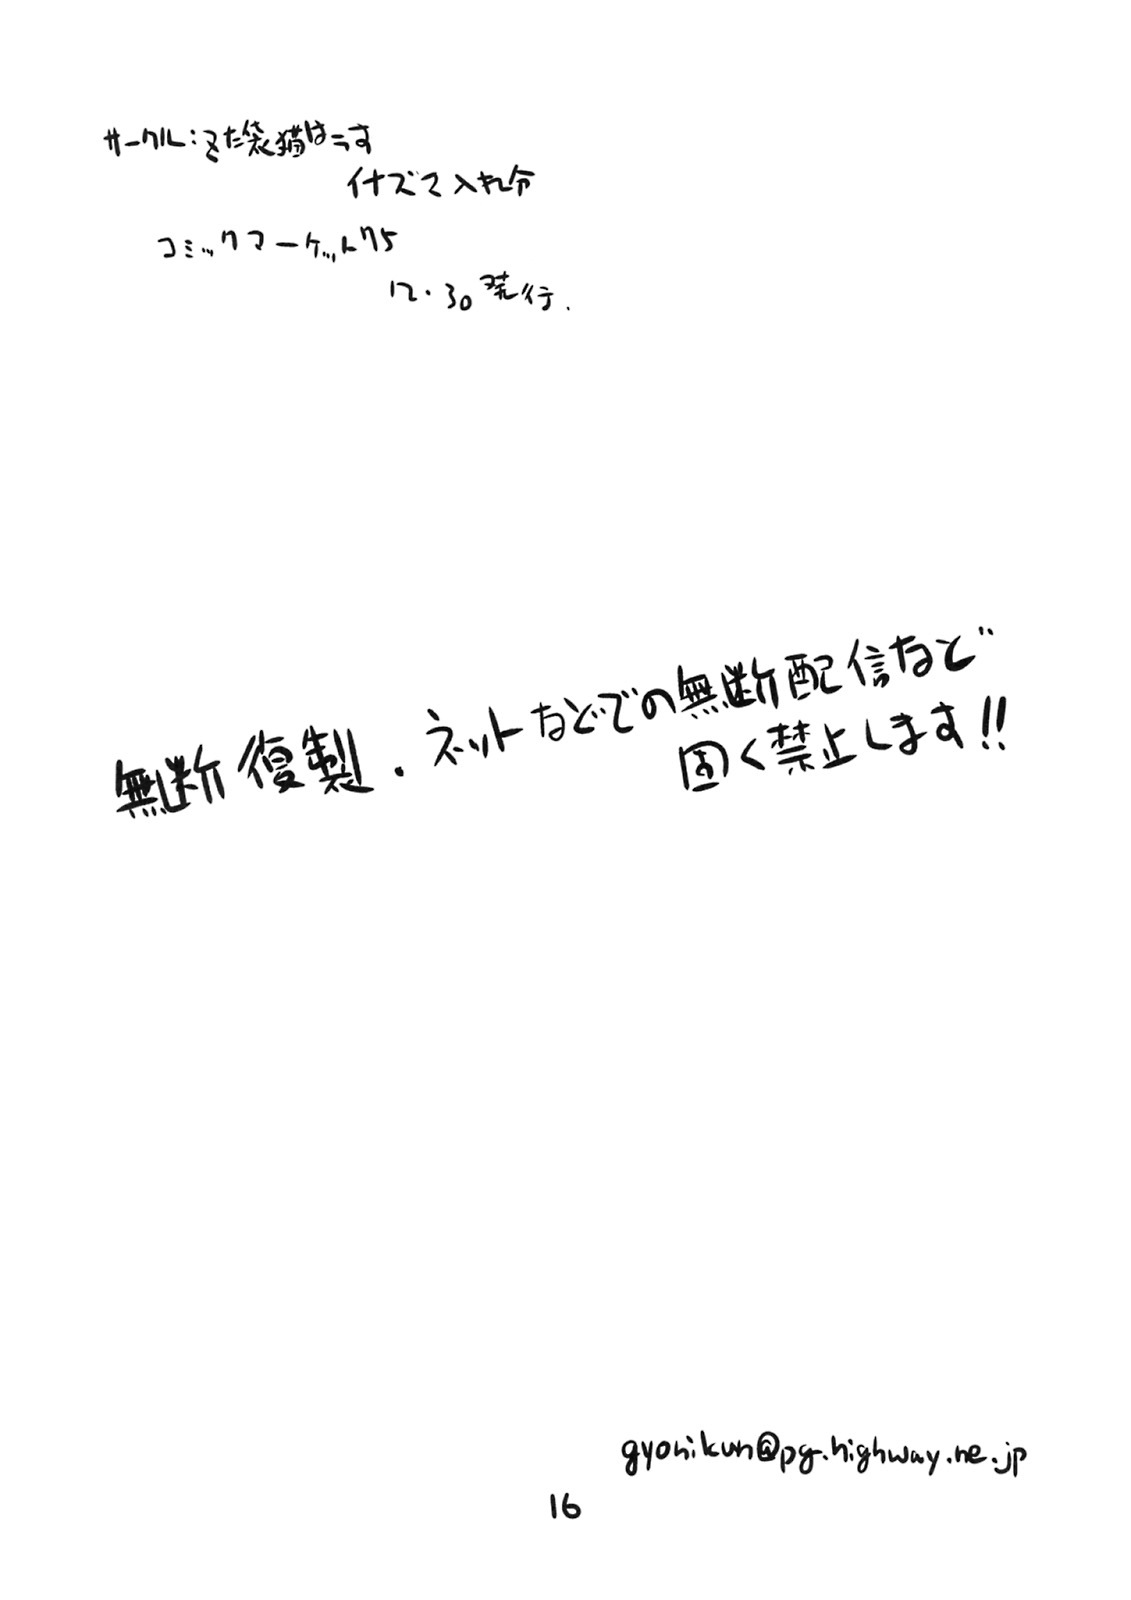 サークル:きた袋猫はうす
イナズマ入れ分
コミックマーケット75
12・30発行.
無断複製・ネットなどでの無断配信など
固く禁止します!!
gyonikun@pg.highway.ne.jp
16